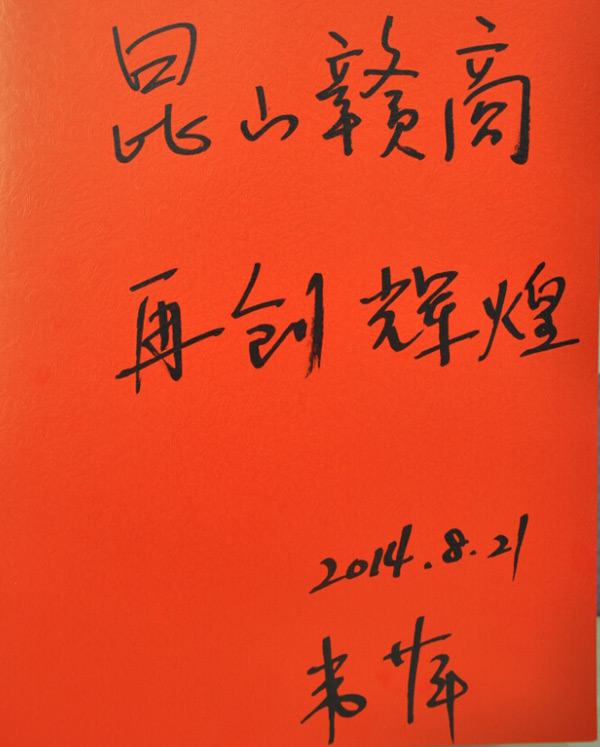 昆山赣商
再创辉煌
2014.8.21